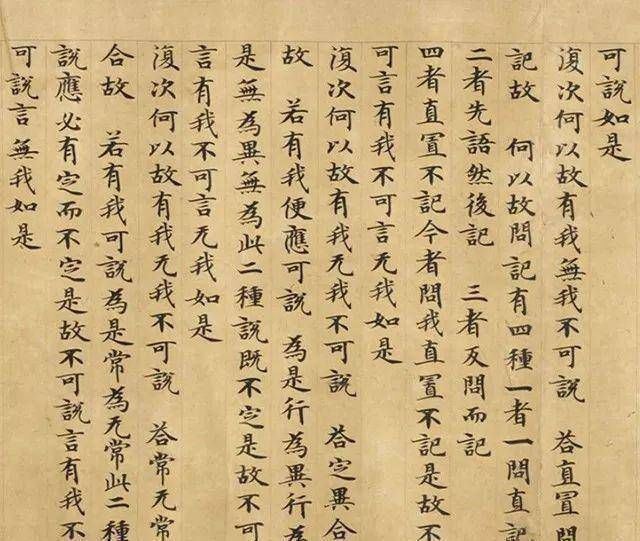 可說如是
復次何以故有我無我不可說　荅直置問
記故　何以故問記有四種一者一問直記
二者先語然後記　三者反問而記
四者直置不記今者問我直置不記是故不
可言有我不可言无我如是
復次何以故有我无我不可說　荅定異合
故　若有我便應可說　為是行為異行為
是無為異無為此二種說既不定是故不可
言有我不可言无我如是
復次何以故有我无我不可說　荅常无常
合故　若有我可說為是常為无常此二種
說應必有定而不定是故不可說言有我不
可說言無我如是